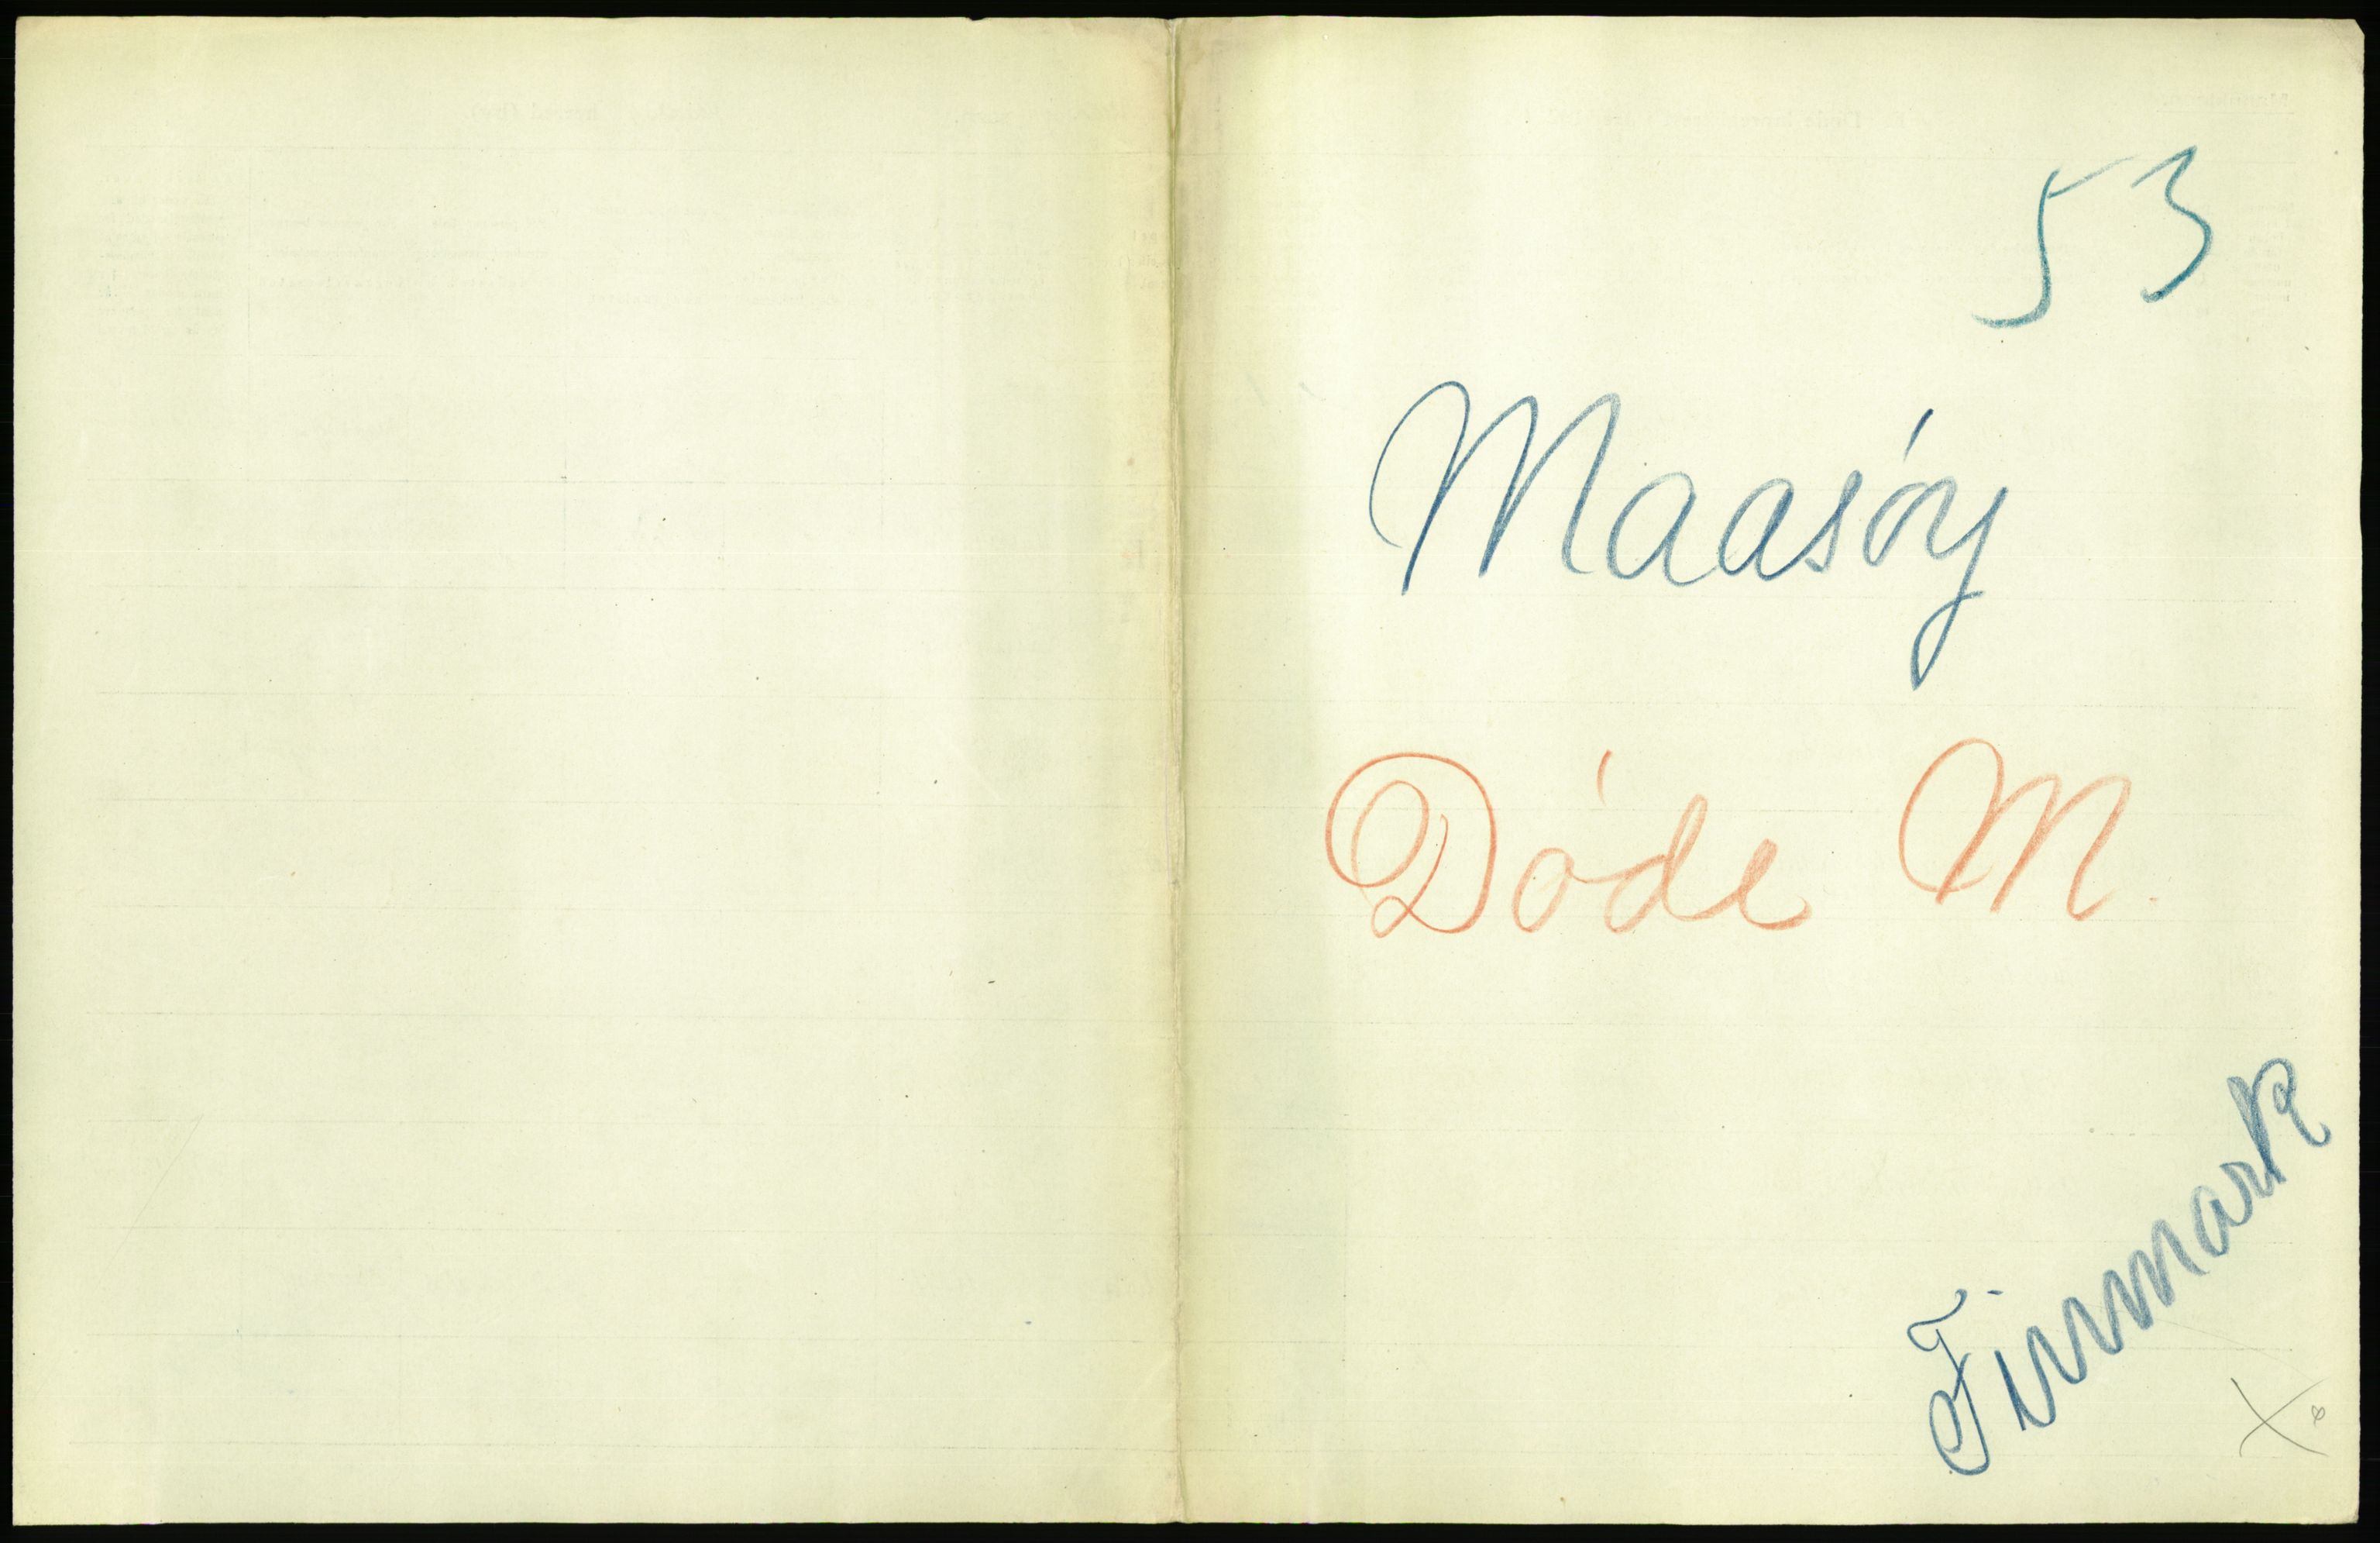 53
Maasóy
Dóde M.
Finmark